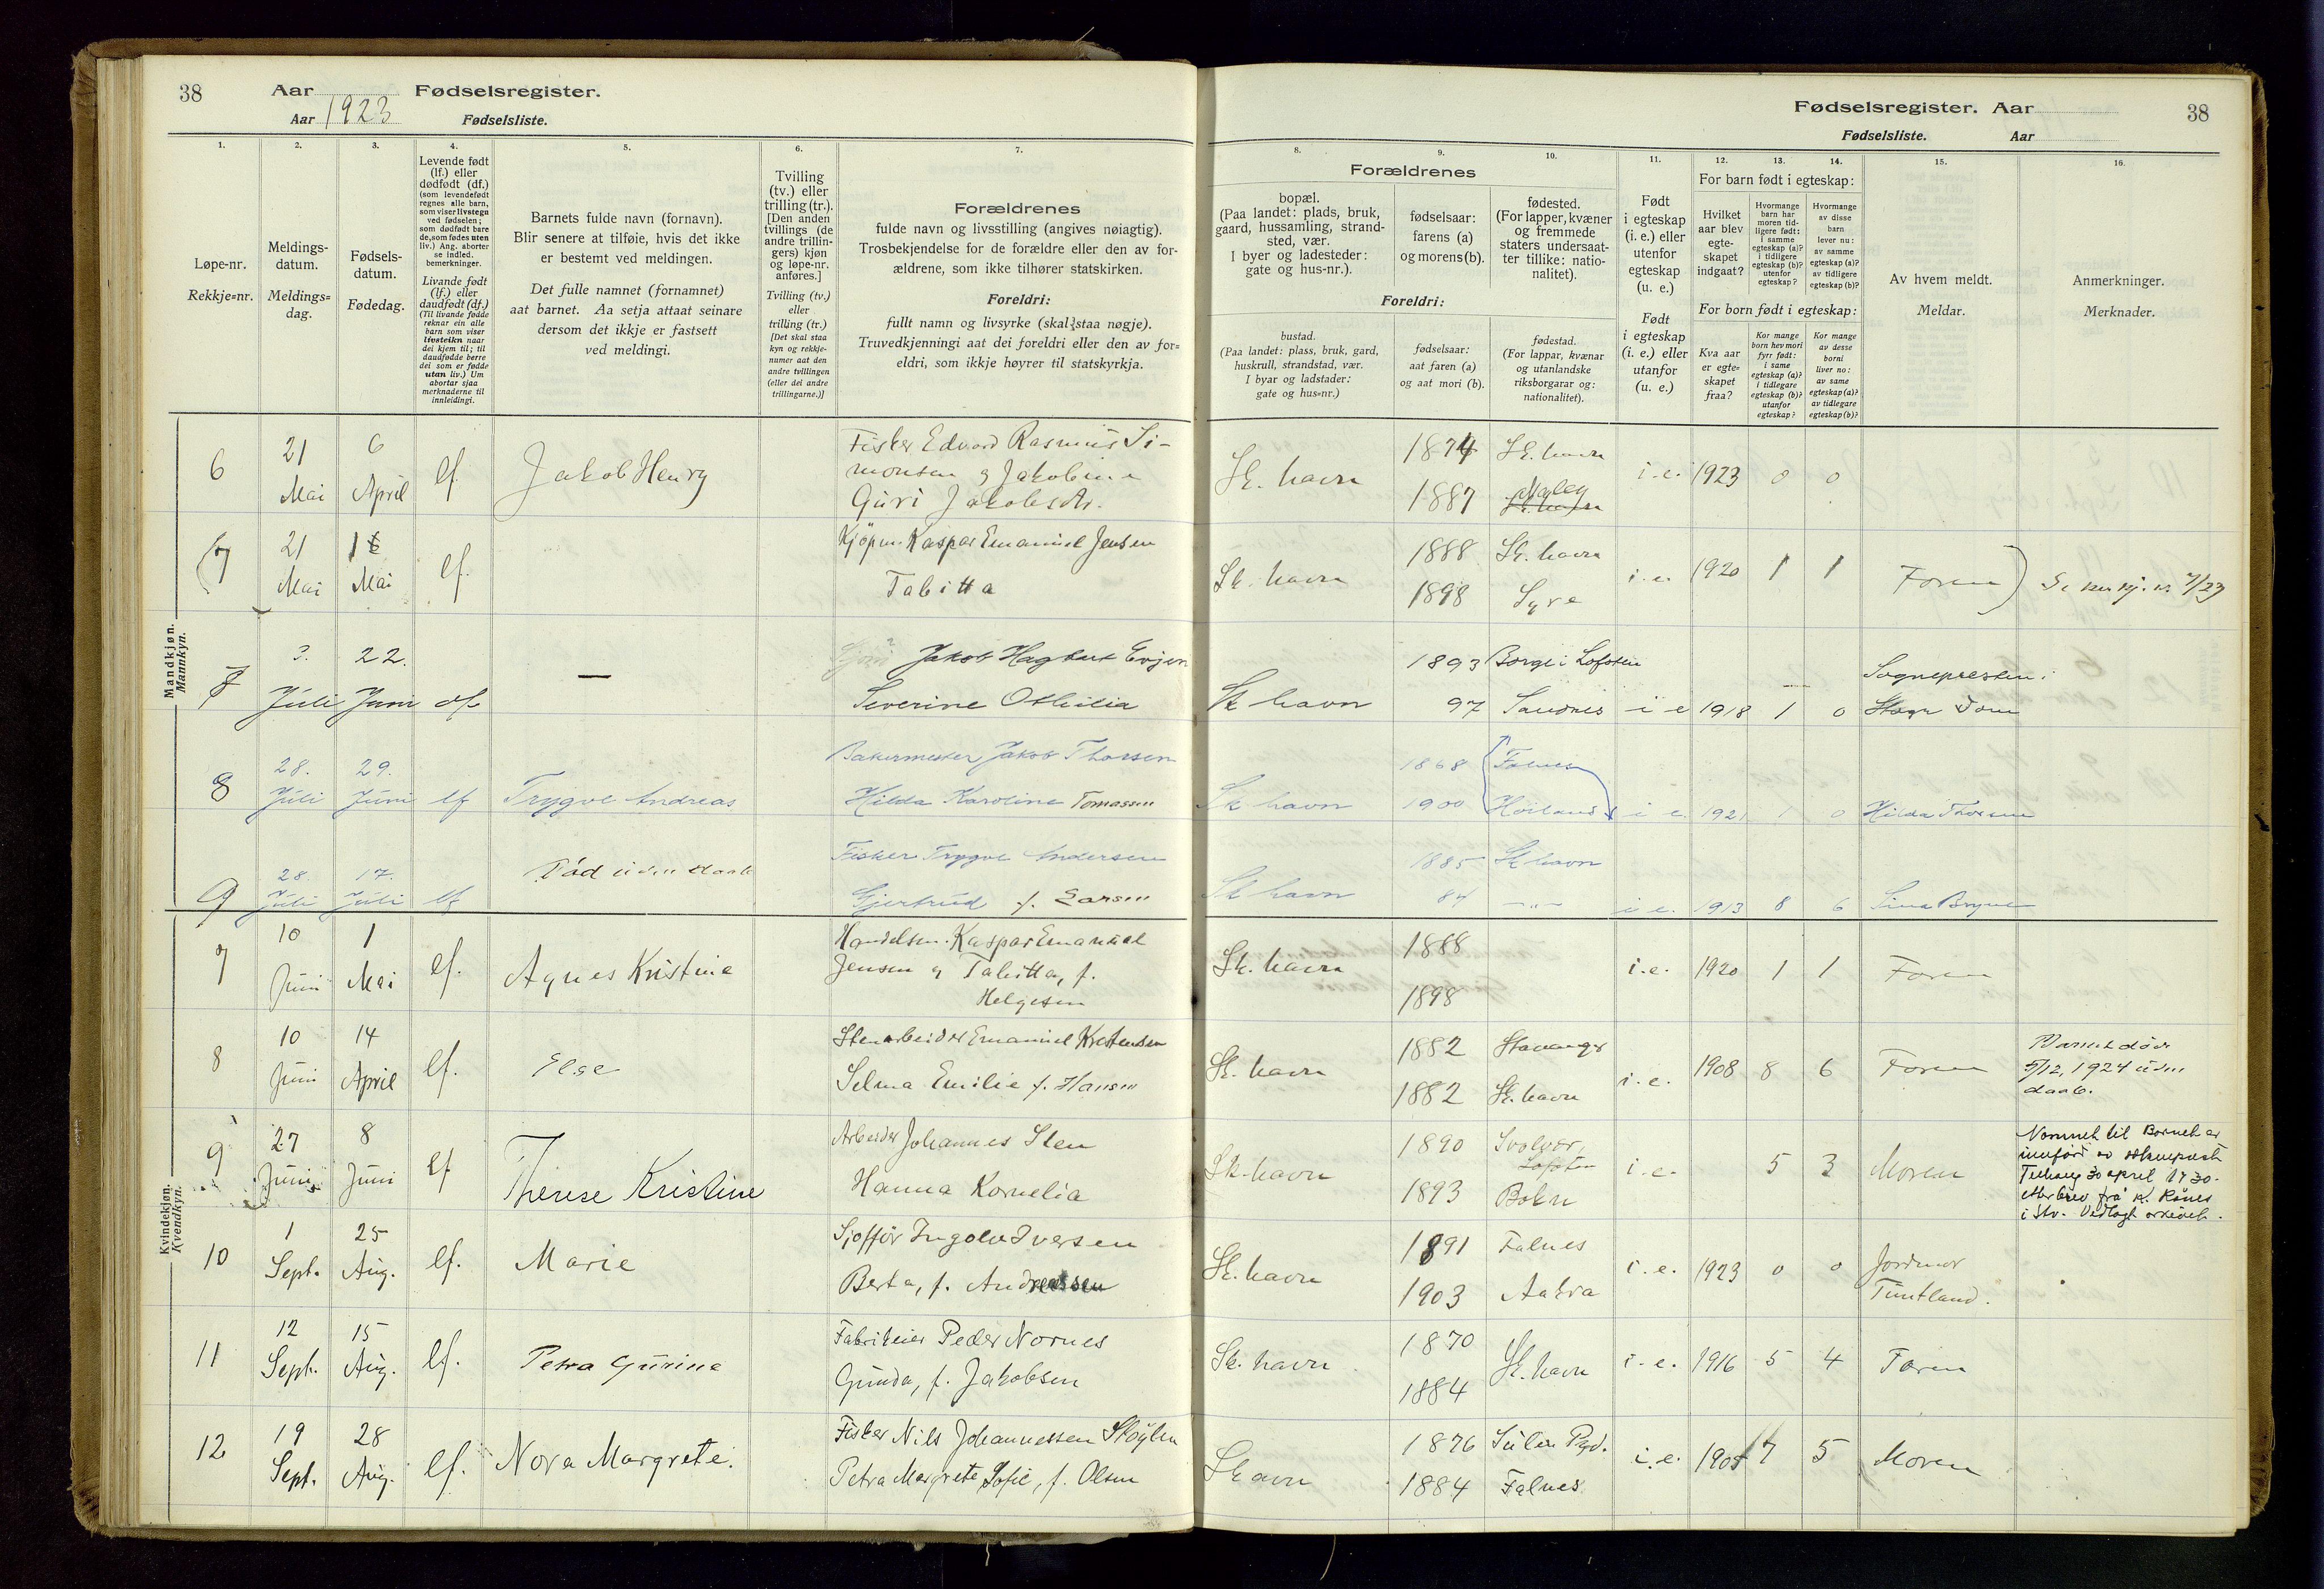 38 Aar Fødselsregister.
Aar 1923 Fødselsliste.
Fødselsregister. Aar 38
Fødselsliste. Aar
1. 2. 3. 4. 5. 6. 7. 8. 9. 10. 11. 12. 13. 14. 15. 16.
Løpe-nr.
Rekkje=nr.
Meldings-
datum.
Meldings=
dag.
Fødsels-
datum.
Fødedag.
Levende født
(lf.) eller
dødfødt (df.)
(som levendefødt
regnes alle barn,
som viser livstegn
ved fødselen;
som dødfødt bare
de, som fødes uten
liv.) Ang. aborter
se indled.
bemerkninger.
Livande født
(lf.) eller
daudfødt (df.)
(Til livande fødde
reknar ein alle
barn som viser
livsteikn naar
dei kjem til; til
daudfødde berre
dei som er fødde
utan liv.) Um
abortar sjaa
merknaderne til
innleidingi.
Barnets fulde navn (fornavn).
Blir senere at tilføie, hvis det ikke
er bestemt ved meldingen.
Det fulle namnet (fornamnet)
aat barnet. Aa setja attaat seinare
dersom det ikkje er fastsett
ved meldingi.
Tvilling
(tv.) eller
trilling (tr.).
[Den anden
tvillings (de
andre trillin-
gers) kjøn
og løpe-nr.
anføres.]
Tvilling (tv.)
eller
trilling (tr.)
[Det skal staa
kyn og rekkje-
numer aat den
andre tvillingen
(eller dei andre
trillingarne.)]
Forældrenes
fulde navn og livsstilling (angives nøiagtig).
Trosbekjendelse for de forældre eller den av for-
ældrene, som ikke tilhører statskirken.
Foreldri:
fullt namn og livsyrke (skal staa nøgje).
Truvedkjenningi aat dei foreldri eller den av for=
eldri, som ikkje høyrer til statskyrkja.
Forældrenes
bopæl.
(Paa landet: plads, bruk,
gaard, hussamling, strand-
sted, vær.
I byer og ladesteder:
gate og hus-nr.).
fødselsaar:
farens (a)
og morens (b).
fødested.
(For lapper, kvæner
og fremmede
staters undersaat-
ter tillike: natio-
nalitet).
Foreldri:
bustad.
(Paa landet: plass, bruk, gard,
huskrull, strandstad, vær.
I byar og ladstader:
gate og hus=nr.)
fødselsaar:
aat faren (a)
og aat mori (b).
fødestad.
(For lappar, kvænar
og utanlandske
riksborgarar og:
nationalitet).
Født
i egteskap
(i. e.) eller
utenfor
egteskap
(u. e.)
Født
i egteskap
(i. e.) eller
utanfor
(u. e.)
For barn født i egteskap:
Hvilket
aar blev
egte-
skapet
indgaat?
Hvormange
barn har
moren tid-
ligere født:
i samme
egteskap (a)?
i tidligere
egteskap (b)?
utenfor
egteskap?
Hvormange
av disse
barn
lever nu:
av samme
egteskap (a)?
av tidligere
egteskap (b)?
For born født i egteskap:
Kva aar
er egte-
skapet
fraa?
Kor mange
born hev mori
fyrr født:
i same
egteskap (a)?
i tidlegare
egteskap (b)?
utanfor
egteskap?
Kor mange
av desse
borni
liver no:
av same
egteskap (a)?
av tidlegare
egteskap (b)?
Av hvem meldt.
Meldar.
Anmerkninger.
Merknader.
Mandkjøn.
Mannkyn.
6 21 Mai 6 April lf. Jakob Henry
Fisker Edvard Rasmus Si-
monsen og Jakobine
Guri Jakobsdtr.
Sk. havn 1874 Sk. havn
1887 i.e. 1923 0 0
(7 21 Mai Mai lf.
Kjøpm. Kaspar Emanuel Jensen
Tabitta
Sk. havn 1888 Sk. havn
1898 Syre i.e. 1920 1 1 Faren) 7/23
7 3. Juli 22. Juni df —
Jakob Hagbart Evjen
Severine Othilia
Sk havn 1893 Borge i Lofoten
97 Sandnes i e 1918 1 0
Sognepresten i
8 28. Juli 29. Juni lf Trygve Andreas
Bakermester Jakob Thorsen
Hilda Karoline Tomassen
Sk havn 1868 Falnes
1900 Høiland i e. 1921 1 0 Hilda Thorsen
9 28. Juli 17. Juli lf Død uden daab
Fisker Trygve Andersen
Gjertrud f. Larsen
Sk havn 1885 Sk havn
84 —"— i e. 1913 8 6 Sina Bryne
Kvindekjøn.
Kvendkyn.
7 10 Juni 1 Mai lf. Agnes Kristine
Handelsm. Kaspar Emanuel
Jensen og Tabitta, f.
Helgesen
Sk. havn 1888
1898 i.e. 1920 1 1 Faren
8 10 Juni 14 April lf. Else
Stenarbeider Emanuel Kristensen
Selma Emilie f. Hansen
Sk. havn 1882 Stavanger
1882 Sk. havn i.e. 1908 8 6 Faren
Barnet døde
5/12, 1924 uden
daab.
9 27 Juni 8 Juni lf Therese Kristine
Arbeider Johannes Sten
Hanna Kornelia
Sk. havn 1890 Svolvær,
Lofoten
1893 Bokn i.e. 5 3 Moren
Navnet til Barnet er
innført av
30 april 1930.
etter brev frå K. Rånes
i Stv. Vedlagt arkivet.
10 1 Sept. 25 Aug. lf. Marie
Sjoffør Ingolv Iversen
Berta, f. Andreassen
Sk. havn 1891 Falnes
1903 Aakra i.e. 1923 0 0 Jordmor
Tuntland.
11 12 Sept. 15 Aug. lf. Petra Gurine
Fabrikeier Peder Nornes
Gunda, f. Jakobsen
Sk. havn 1870
1884 Sk. havn i.e. 1916 5 4 Faren
12 19 Sept. 28 Aug. lf. Nora Margrete.
Fisker Nils Johannessen Støylen
Petra Margrete Sofie, f. Olsen
Sk avn 1876 Sulen Pgd.
1884 Falnes i.e. 1905 7 5 Moren